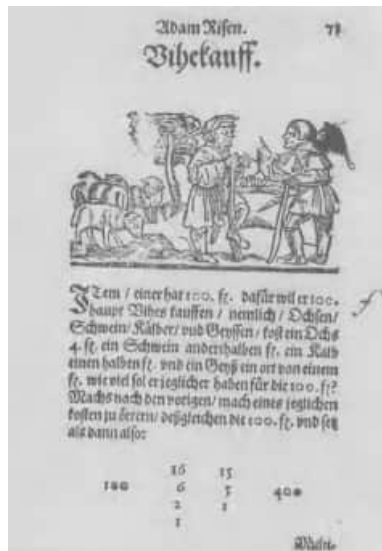 Adam Risen. 71
Vihekauff.
ITem / einer hat 100. fl. dafür wil er 100.
haupt Vihes kauffen / nemlich / Ochsen /
Schwein / Kälber / vnd Geyssen / kost ein Ochs
4. fl. ein Schwein anderthalben fl. ein Kalb
einen halben fl. vnd ein Geyß ein ort von einem
fl. wie viel sol er jeglicher haben für die 100. fl?
Machs nach den vorigen / mach eines jeglichen
kosten zu örtern / deßgleichen die 100. fl. vnd setz
als dann also:
16 15
100 6 5 400
2 1
1